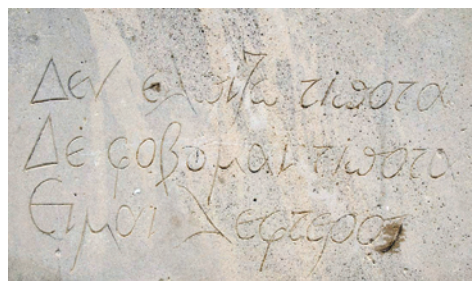 Δεν ελπιζω τιποτα
Δε φοβυμαι τιποτα
Ειμαι λεφτερος